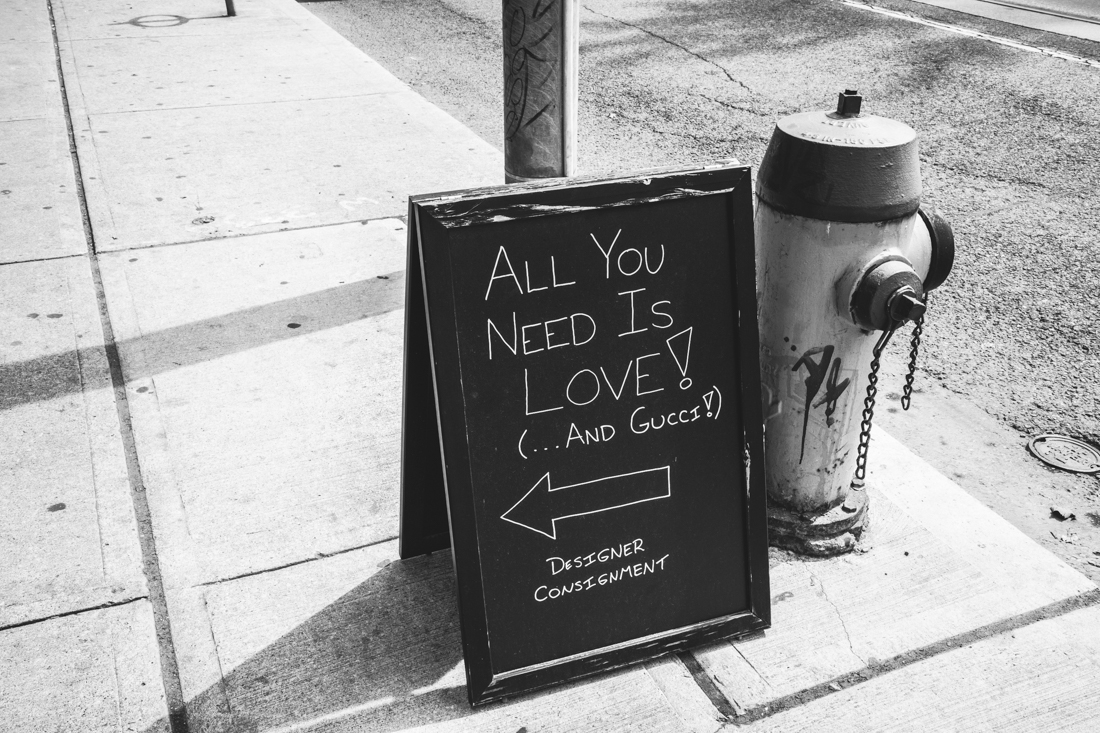 All You
Need Is
Love!
(...And Gucci!)
Designer
Consignment